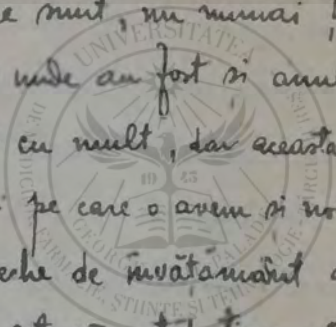 e sunt, nu numai
unde au fost si anu
cu mult, dar aceasta
pe care o avem si no
eche de învătământ
UNIVERSITATEA
DE MEDICINĂ, FARMACIE, ȘTIINȚE ȘI TEHNOLOGIE
GEORGE PALADE
19 45